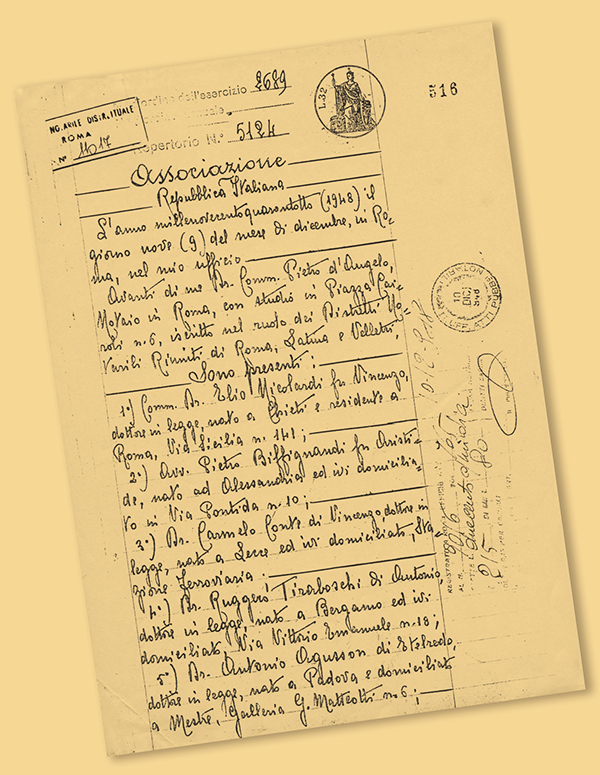 dell'esercizio 2689
516
L.32
DISTRETTUALE
ROMA
N° 11017
Repertorio N.° 5124
Associazione
Repubblica Italiana
L'anno millenovecentoquarantotto (1948) il
giorno nove (9) del mese di dicembre, in Ro-
ma, nel mio ufficio
Avanti di me Dr. Comm. Pietro d'Angelo,
Notaio in Roma, con studio in Piazza Cai-
roli n. 6, iscritto nel ruolo dei Distretti No-
tarili Riuniti di Roma, Latina e Velletri,
Sono presenti:
1°) Comm. Dr. Elio Nicolardi fu Vincenzo,
dottore in legge, nato a Chieti e residente a
Roma, Via Sicilia n. 141;
2°) Avv. Pietro Biffignandi fu Aristi-
de, nato ad Alessandria ed ivi domicilia-
to in Via Pontida n. 10;
3°) Dr. Carmelo Conte di Vincenzo, dottore in
legge, nato a Lecce ed ivi domiciliato, Sta-
zione Ferroviaria;
4°) Dr. Ruggero Tiraboschi di Antonio,
dottore in legge, nato a Bergamo ed ivi
domiciliato, Via Vittorio Emanuele n. 18;
5°) Dr. Antonio Agusson di Etelredo,
dottore in legge, nato a Padova e domiciliato
a Mestre, Galleria G. Matteotti n. 6;
10 DIC 948